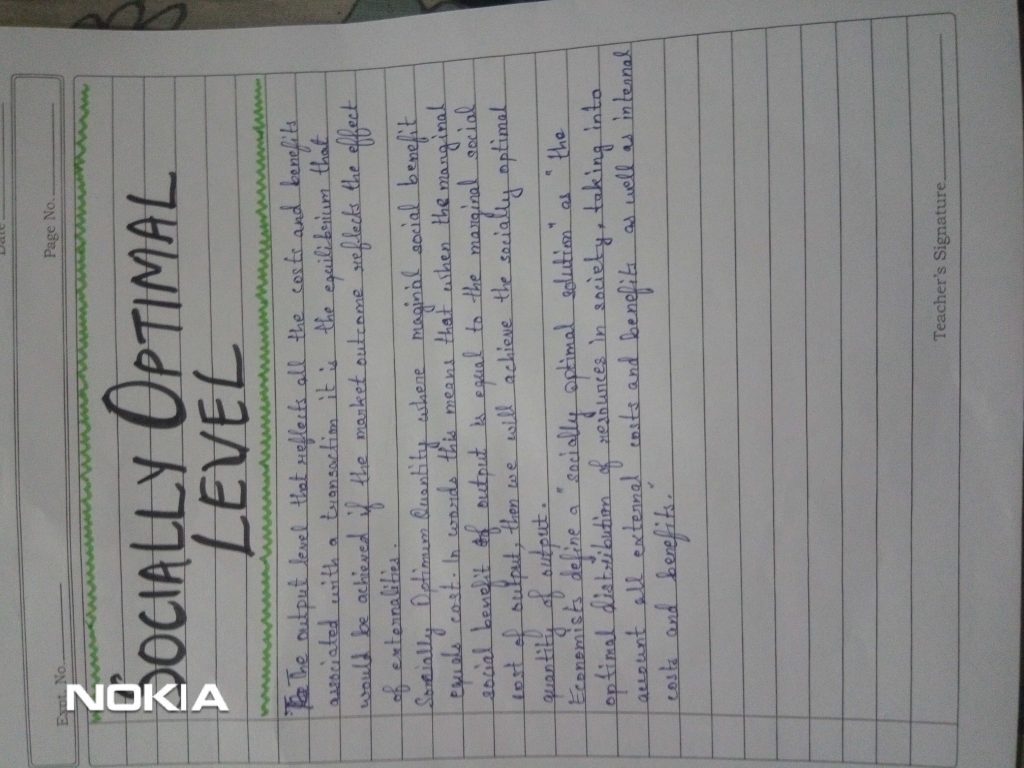 Date
Page No.
Expt. No.
SOCIALLY OPTIMAL
LEVEL
The The output level that reflects all the costs and benefits
associated with a transaction it is the equilibrium that
would be achieved if the market outcome reflects the effect
of externalities.
Socially Optimum Quantity where maginal social benefit
equals cost. In words this means that when the marginal
social benefit of output is equal to the marginal social
cost of output, then we will achieve the socially optimal
quantity of output.
Economists define a "socially optimal solution" as "the
optimal distribution of resources in society, taking into
account all external costs and benefits as well as internal
costs and benefits."
Teacher's Signature
NOKIA